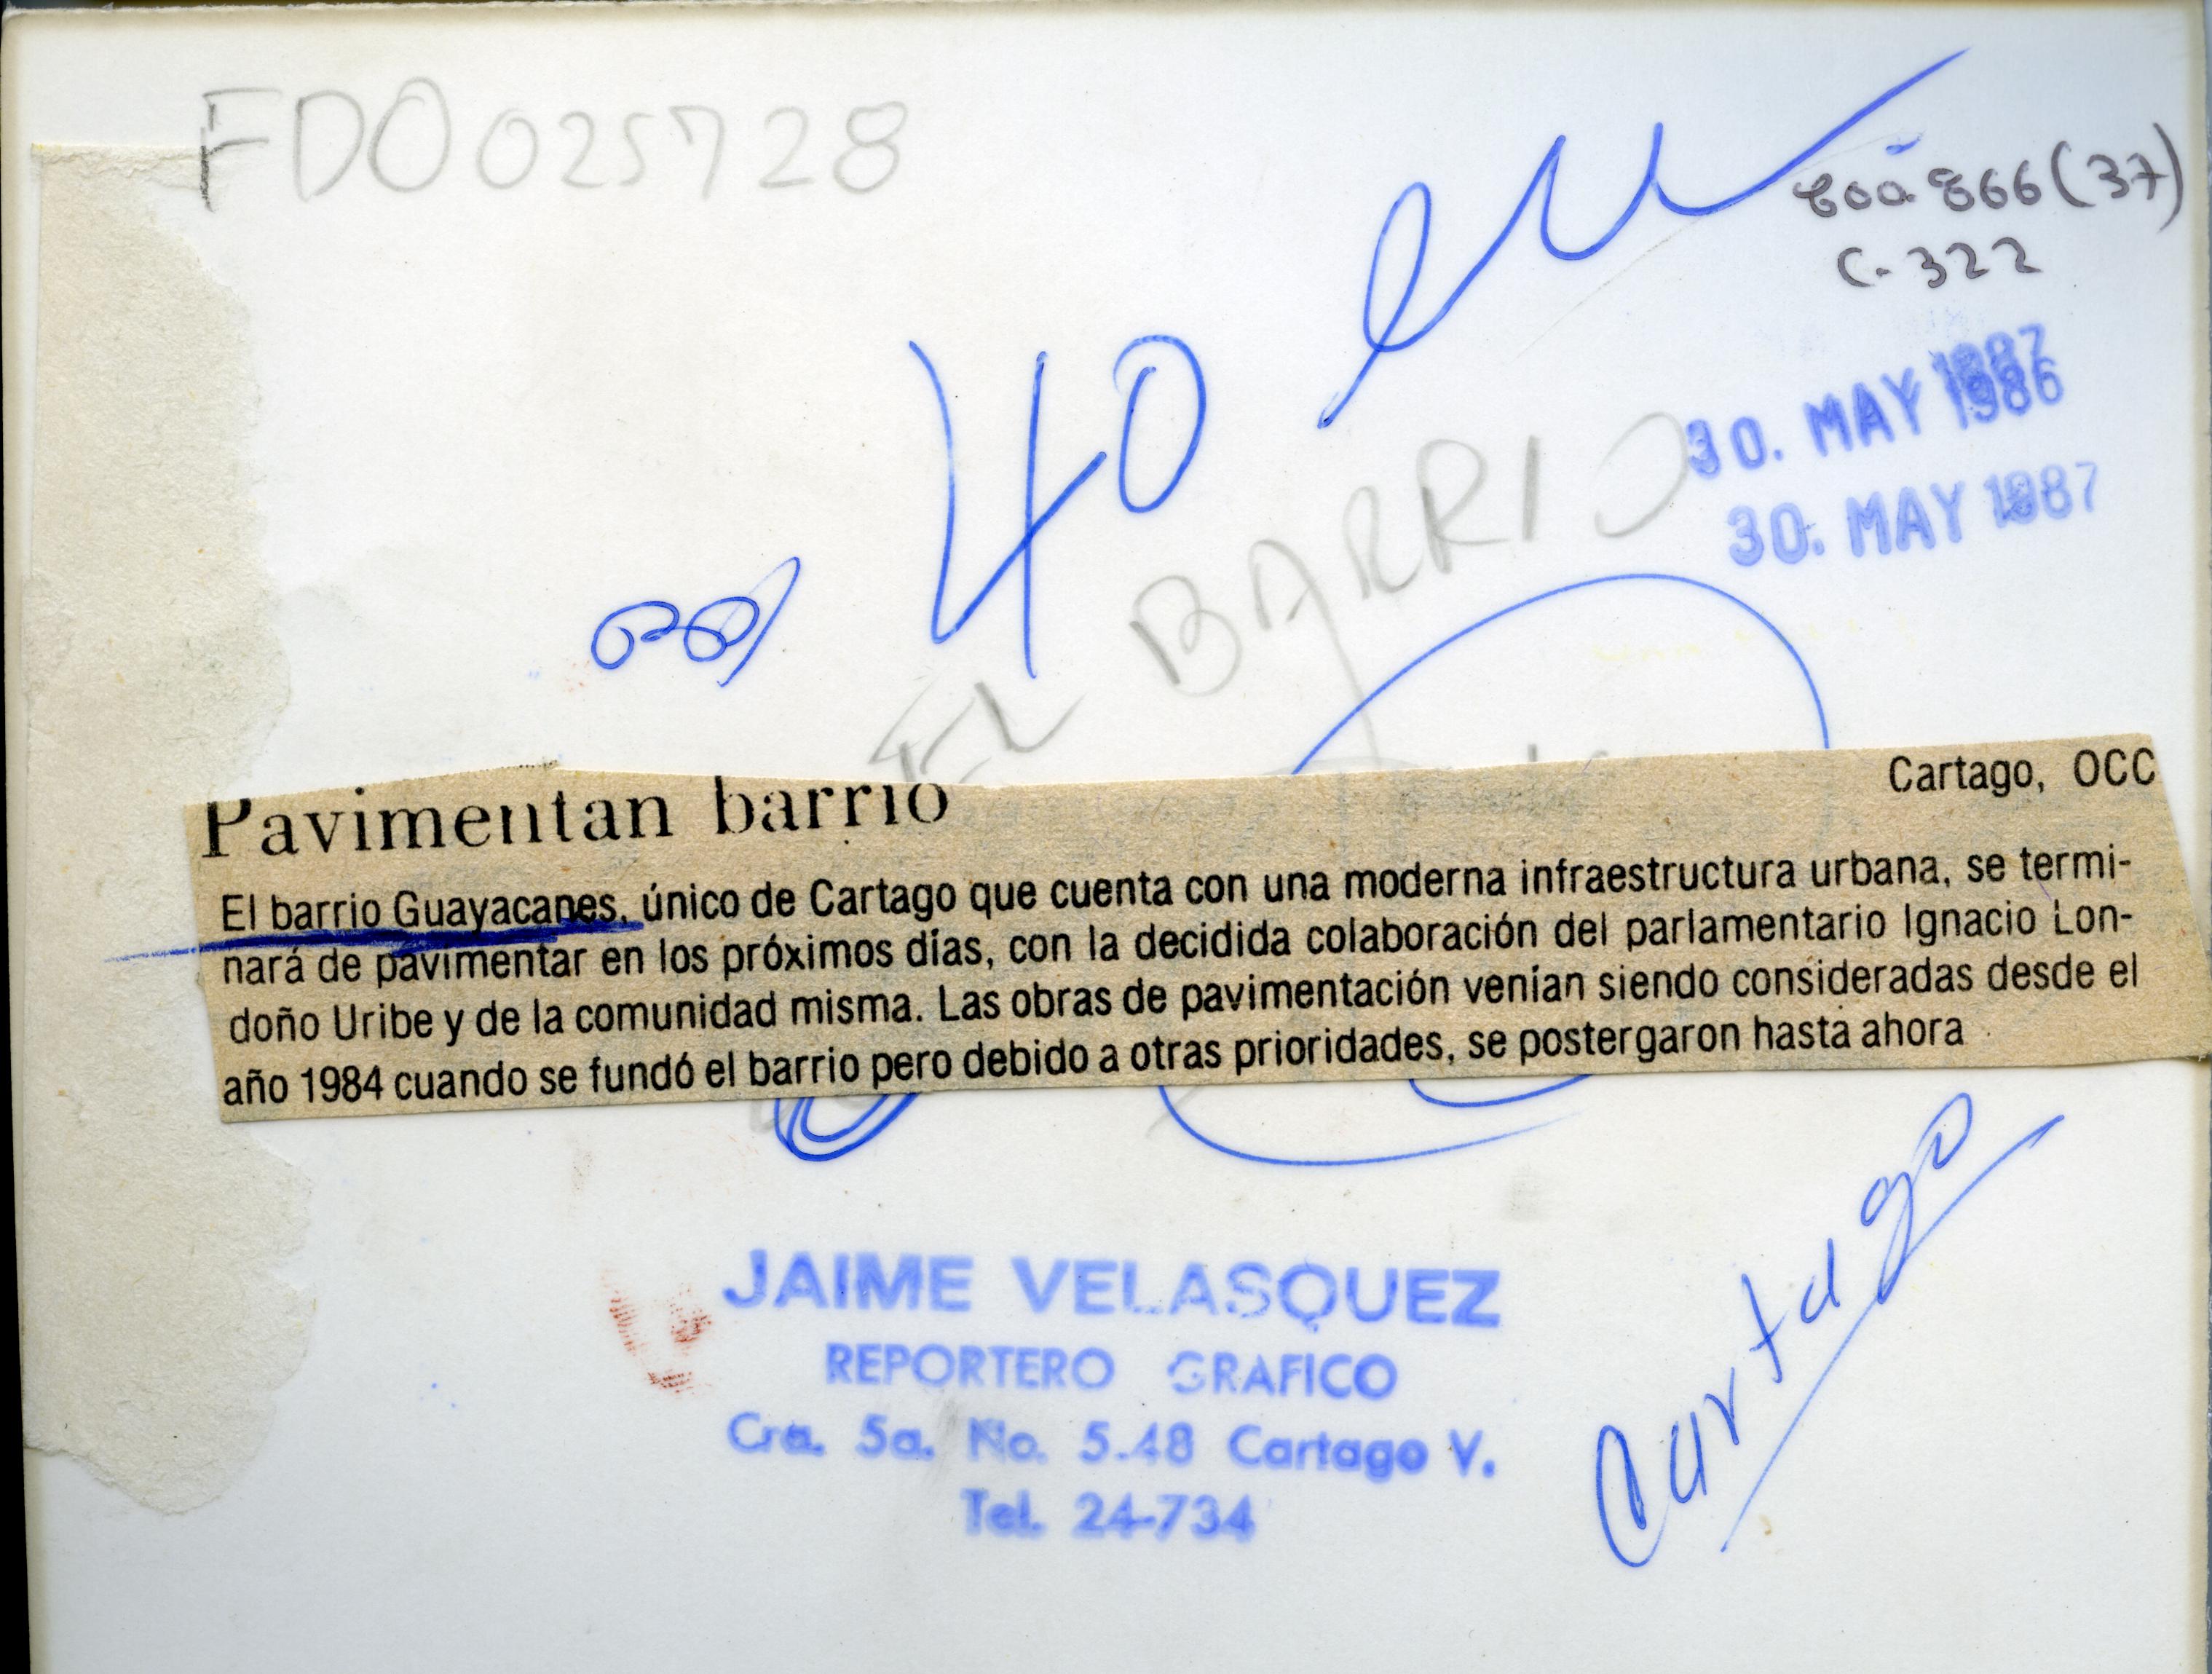 FDO025728
866 (37)
C-322
40 cm
30. MAY 1986
30. MAY 1987
EL BARRIO
Pavimentan barrio
Cartago, OCC
El barrio Guayacanes, único de Cartago que cuenta con una moderna infraestructura urbana, se termi-
nará de pavimentar en los próximos días, con la decidida colaboración del parlamentario Ignacio Lon-
doño Uribe y de la comunidad misma. Las obras de pavimentación venían siendo consideradas desde el
año 1984 cuando se fundó el barrio pero debido a otras prioridades, se postergaron hasta ahora
JAIME VELASQUEZ
REPORTERO GRAFICO
Cra. 5a. No. 5.48 Cartago V.
Tel. 24-734
Cartago